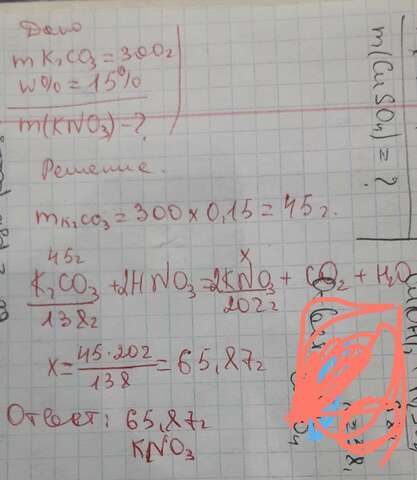 Дано
m K₂CO₃ = 300г
w% = 15%
m(KNO₃) - ?
m(CuSO₄) = ?
Решение.
mK₂CO₃ = 300 × 0,15 = 45г.
45г x
K₂CO₃ + 2HNO₃ = 2KNO₃ + CO₂ + H₂O
138г 202г
x = 45·202/138 = 65,87г
Ответ: 65,87г
KNO₃